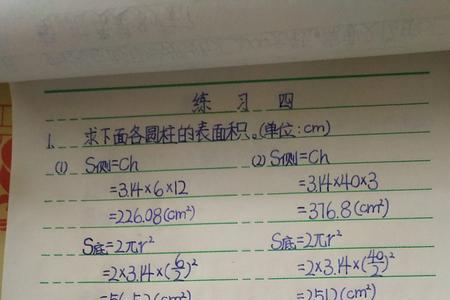 练习四
1. 求下面各圆柱的表面积。(单位:cm)
(1) S侧=Ch
=3.14×6×12
=226.08(cm²)
S底=2πr²
=2×3.14×(6/2)²
=56.52(cm²)
(2) S侧=Ch
=3.14×40×3
=376.8(cm²)
S底=2πr²
=2×3.14×(40/2)²
=2512(cm²)